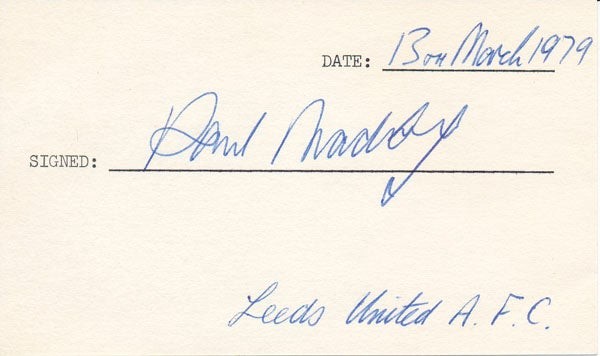 DATE: 13TH March 1979
SIGNED: Paul Madeley
Leeds United A.F.C.